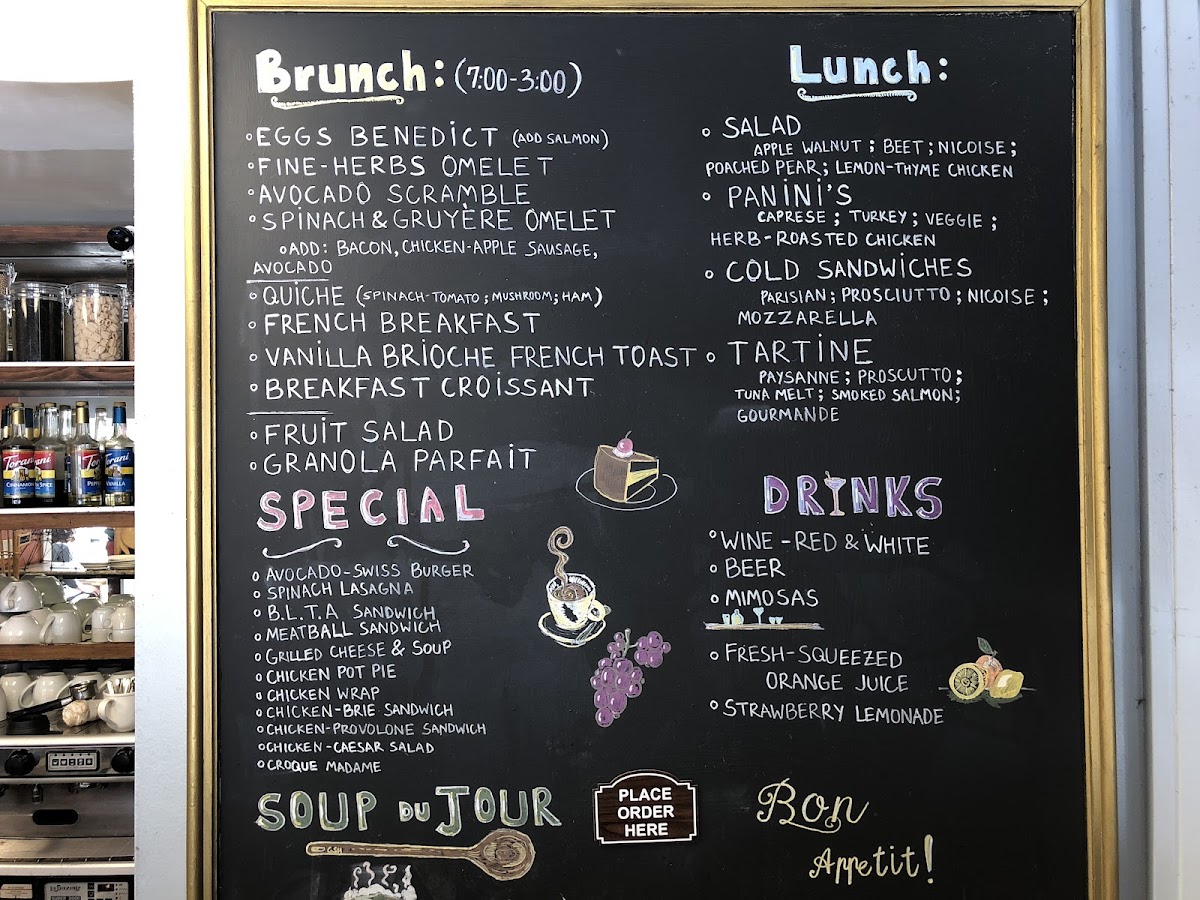 Brunch: (7:00-3:00)
EGGS BENEDICT (ADD SALMON)
FINE-HERBS OMELET
AVOCADO SCRAMBLE
SPINACH & GRUYÈRE OMELET
ADD: BACON, CHICKEN-APPLE SAUSAGE,
AVOCADO
QUICHE (SPINACH-TOMATO; MUSHROOM; HAM)
FRENCH BREAKFAST
VANILLA BRIOCHE FRENCH TOAST
BREAKFAST CROISSANT
FRUIT SALAD
GRANOLA PARFAIT
SPECIAL
AVOCADO-SWISS BURGER
SPINACH LASAGNA
B.L.T.A SANDWICH
MEATBALL SANDWICH
GRILLED CHEESE & SOUP
CHICKEN POT PIE
CHICKEN WRAP
CHICKEN-BRIE SANDWICH
CHICKEN-PROVOLONE SANDWICH
CHICKEN-CAESAR SALAD
CROQUE MADAME
SOUP DU JOUR
GSH
Lunch:
SALAD
APPLE WALNUT; BEET; NICOISE;
POACHED PEAR; LEMON-THYME CHICKEN
PANINI'S
CAPRESE; TURKEY; VEGGIE;
HERB-ROASTED CHICKEN
COLD SANDWICHES
PARISIAN; PROSCIUTTO; NICOISE;
MOZZARELLA
TARTINE
PAYSANNE; PROSCUTTO;
TUNA MELT; SMOKED SALMON;
GOURMANDE
DRINKS
WINE - RED & WHITE
BEER
MIMOSAS
FRESH-SQUEEZED
ORANGE JUICE
STRAWBERRY LEMONADE
PLACE
ORDER
HERE
Bon
Appetit!
Torani
Torani
VANILLA